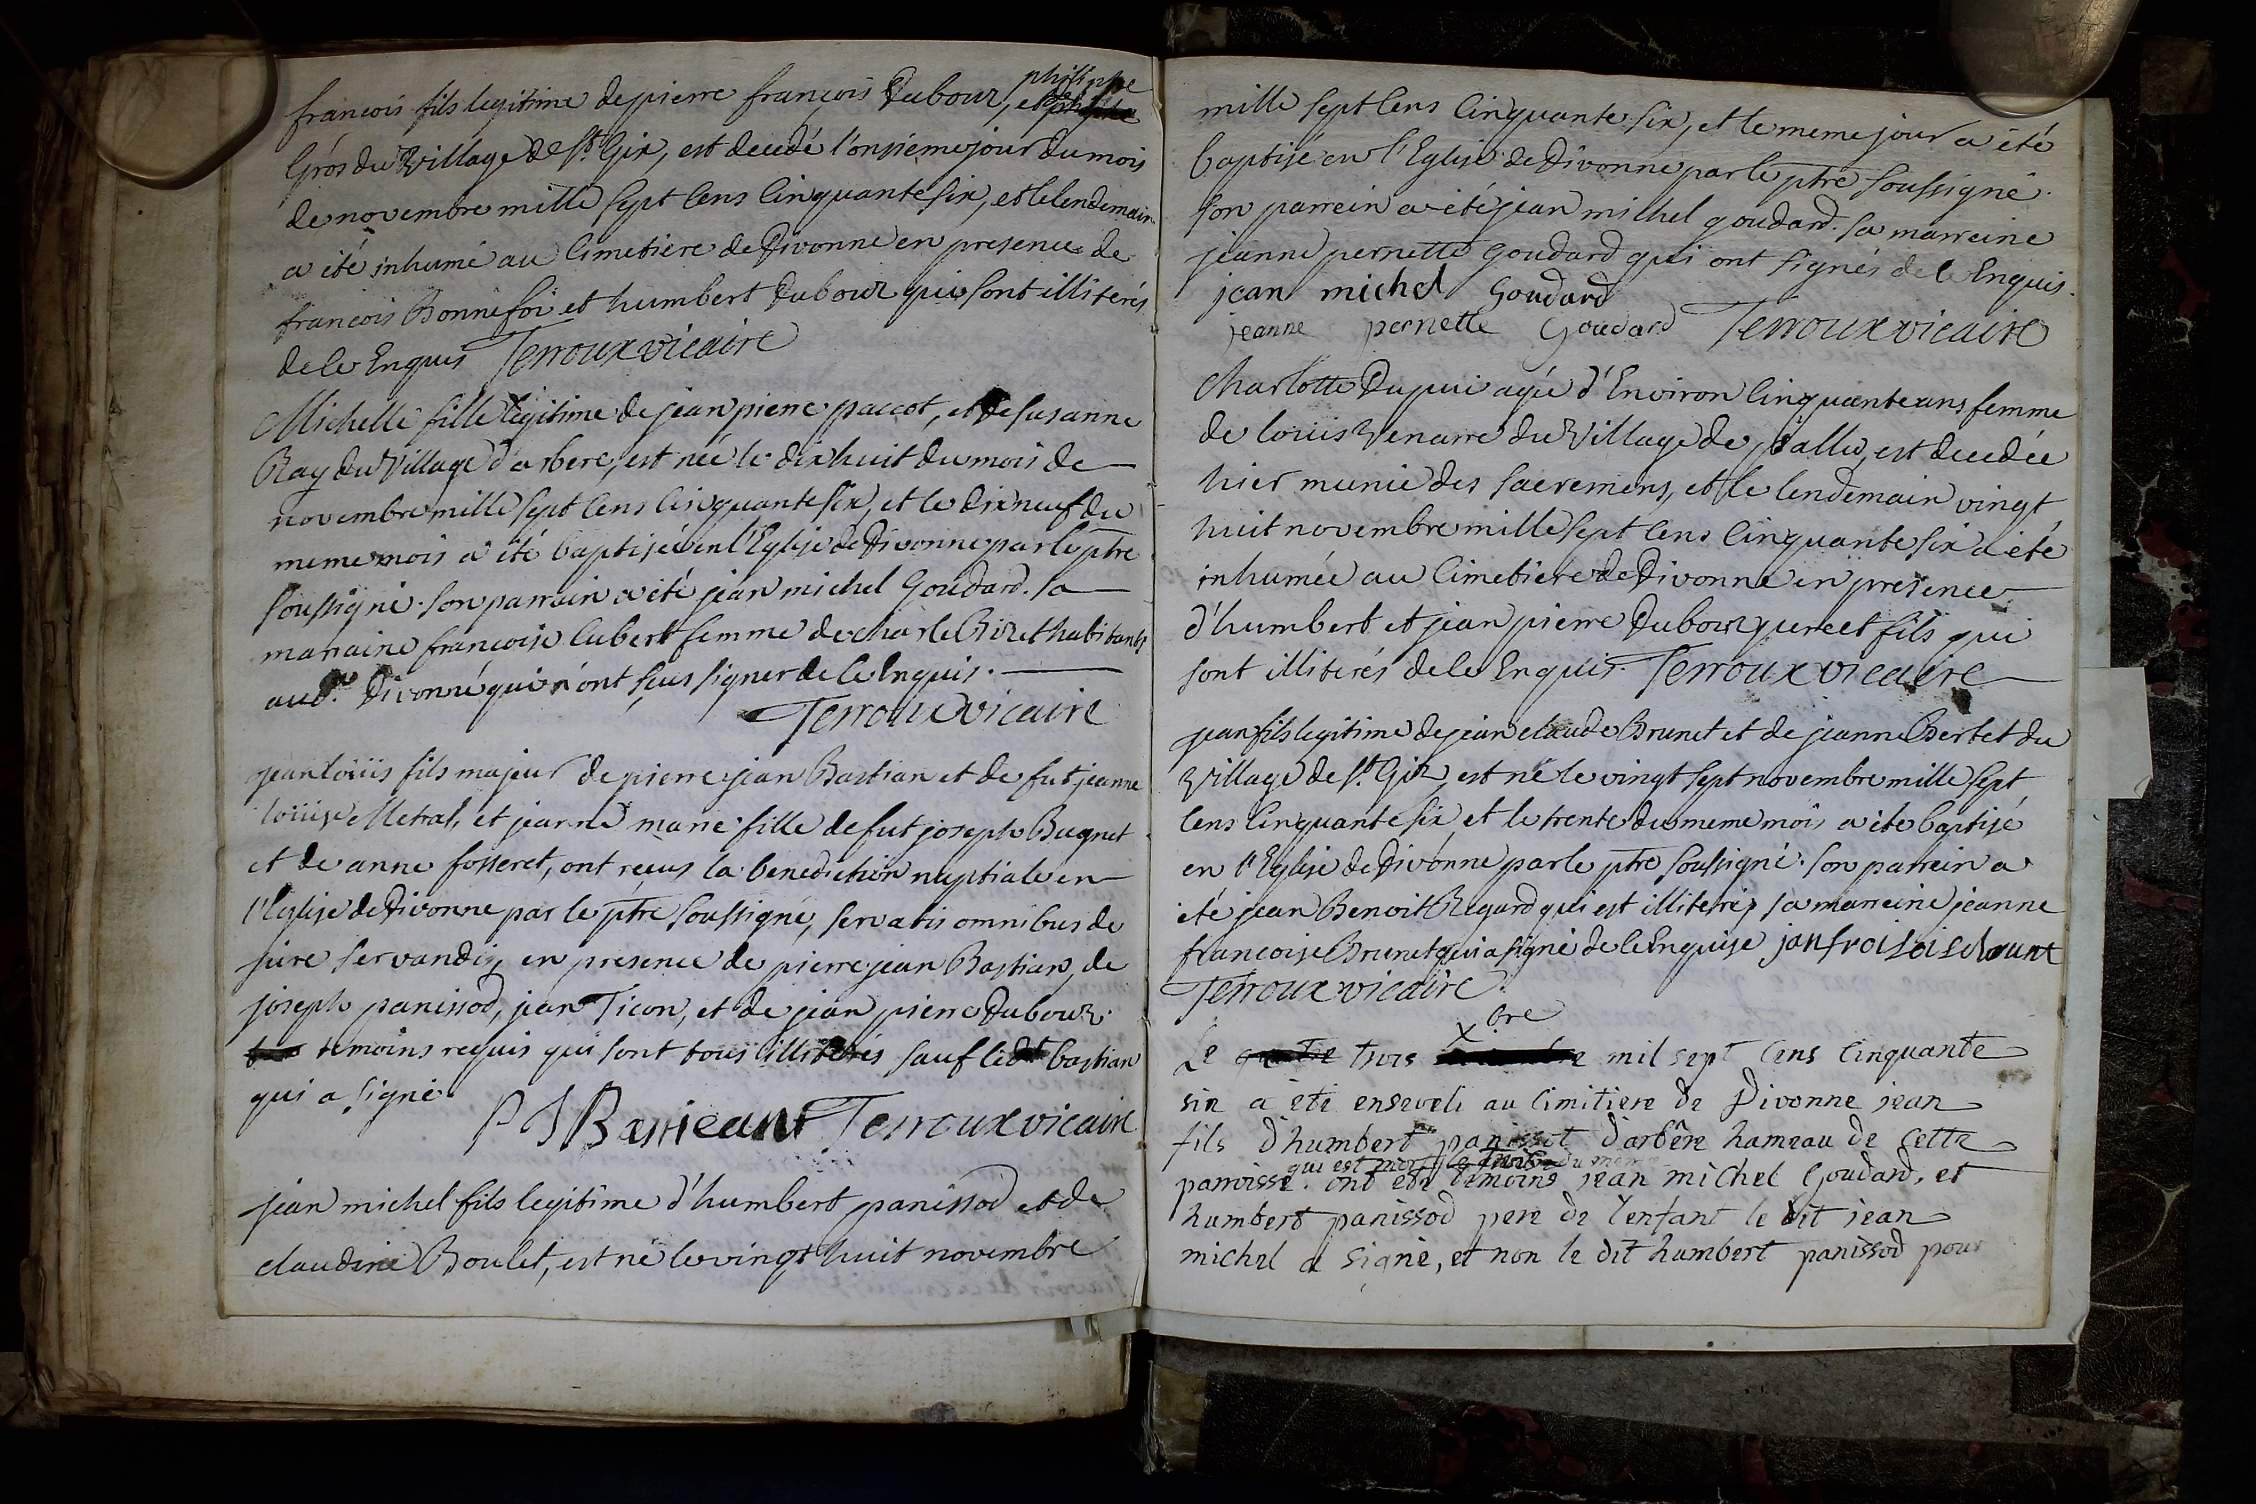 françois fils legitime de pierre françois Dubour, et philippe
Grós du Village de St. Gix, est decedé l'onsiéme jour du mois
de novembre mille sept Cens Cinquante six, et le lendemain
a été inhumé au Cimetiere de Divonne en presence de
françois Bonnefoi et humbert Dubour qui sont illiterés
de ce Enquis Terroux vicaire
Michelle fille legitime de jean pierre paccot, et de susanne
Ray du Village d'arbere, est née le dix huit du mois de
novembre mille sept Cens Cinquante six, et le dix neuf du
meme mois a été baptisée en l'Eglise de Divonne par le ptre
soussigné. son parrain a été jean michel Goudard. sa
marraine françoise Cubert femme de charle Bizet habitants
aud. Divonne qui n'ont sçus signer de ce Enquis.
Terroux vicaire
jean loüis fils majeur de pierre jean Bastian et de fut jeanne
loüise Metral, et jeanne marie fille de fut joseph Bugnet
et de anne fosseret, ont reçus la benediction nuptiale en
l'Eglise de Divonne par le ptre soussigné, servatis omnibus de
jure servandis, en presence de pierre jean Bastian, de
joseph panissod, jean Ticon, et de jean pierre Dubour
temoins requis qui sont tous illiterés sauf ledt bastian
qui a signé
P J Bastiean Terroux vicaire
jean michel fils legitime d'humbert panissod et de
claudine Boulet, est né le vingt huit novembre
mille sept Cens Cinquante six, et le meme jour a été
baptisé en l'Eglise de Divonne par le ptre soussigné.
son parrein a été jean michel goudard. sa marreine
jeanne pernette goudard qui ont signés de ce Enquis.
jean michel Goudard
jeanne pernette Goudard Terroux vicaire
charlotte Dupui agée d'Environ Cinquante ans femme
de loüis Venarre du Village de, est decedée
hier munie des sacremens, et le lendemain vingt
huit novembre mille sept Cens Cinquante six a été
inhumée au Cimetiere de Divonne en presence
d'humbert et jean pierre Dubour pere et fils qui
sont illiterés de ce Enquis. Terroux vicaire
jean fils legitime de jean claude Brunet et de jeanne Bertet du
Village de St. Gix, est né le vingt sept novembre mille sept
Cens Cinquante six, et le trente du meme mois a été baptisé
en l'Eglise de Divonne par le ptre soussigné. son parrein a
été jean Benoit Regard qui est illiteré, sa marreine jeanne
francoise Brunet qui a signé de ce Enquise
Terroux vicaire
Le quatre trois Xbre mil sept Cens Cinquante
six a été enseveli au Cimitiere de Divonne jean
fils d'humbert panissot d'arbêre hameau de cette
qui est mort le trois du meme
parroisse. ont été temoins jean michel Goudard, et
humbert panissod pere de l'enfant le dit jean
michel a signé, et non le dit humbert panissod pour